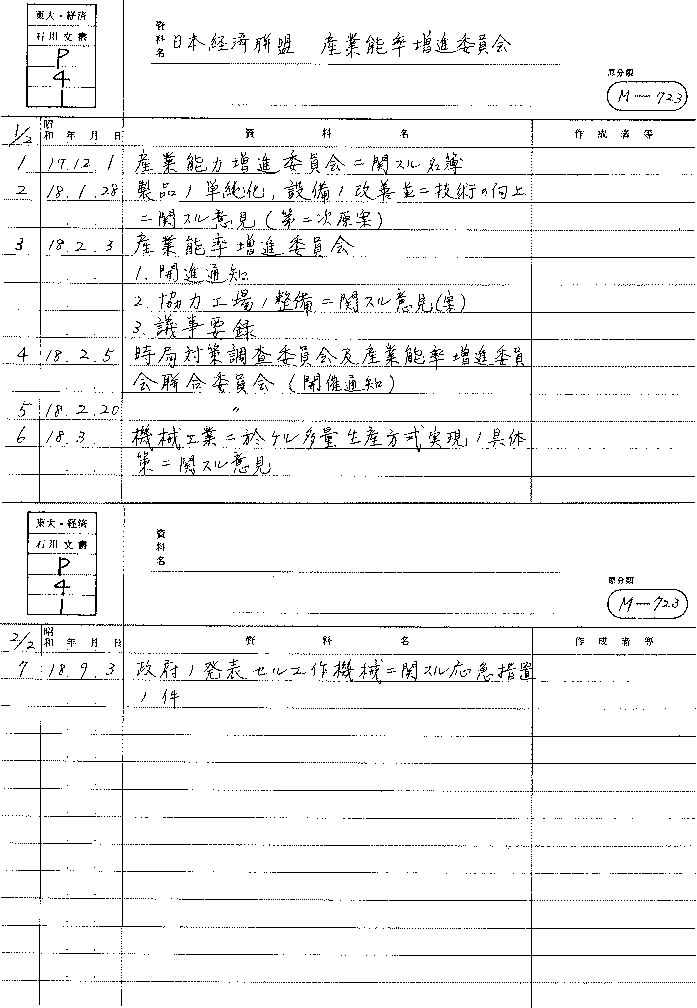 東大・経済
石川文書
P
4
1
資料名 日本経済聯盟 産業能率増進委員会
原分類
M-723
1/2 昭和 年 月 日 資料名 作成者等
1 17.12.1 産業能力増進委員会ニ関スル名簿
2 18.1.28 製品ノ単純化,設備ノ改善並ニ技術の向上
ニ関スル意見(第二次原案)
3 18.2.3 産業能率増進委員会
1. 開進通知
2. 協力工場ノ整備ニ関スル意見(案)
3. 議事要録
4 18.2.5 時局対策調査委員会及産業能率増進委員
会聯合委員会(開催通知)
5 18.2.20 〃
6 18.3 機械工業ニ於ケル多量生産方式実現ノ具体
策ニ関スル意見
東大・経済
石川文書
P
4
1
資料名
原分類
M-723
2/2 昭和 年 月 日 資料名 作成者等
7 18.9.3 政府ノ発表セル工作機械ニ関スル応急措置
ノ件